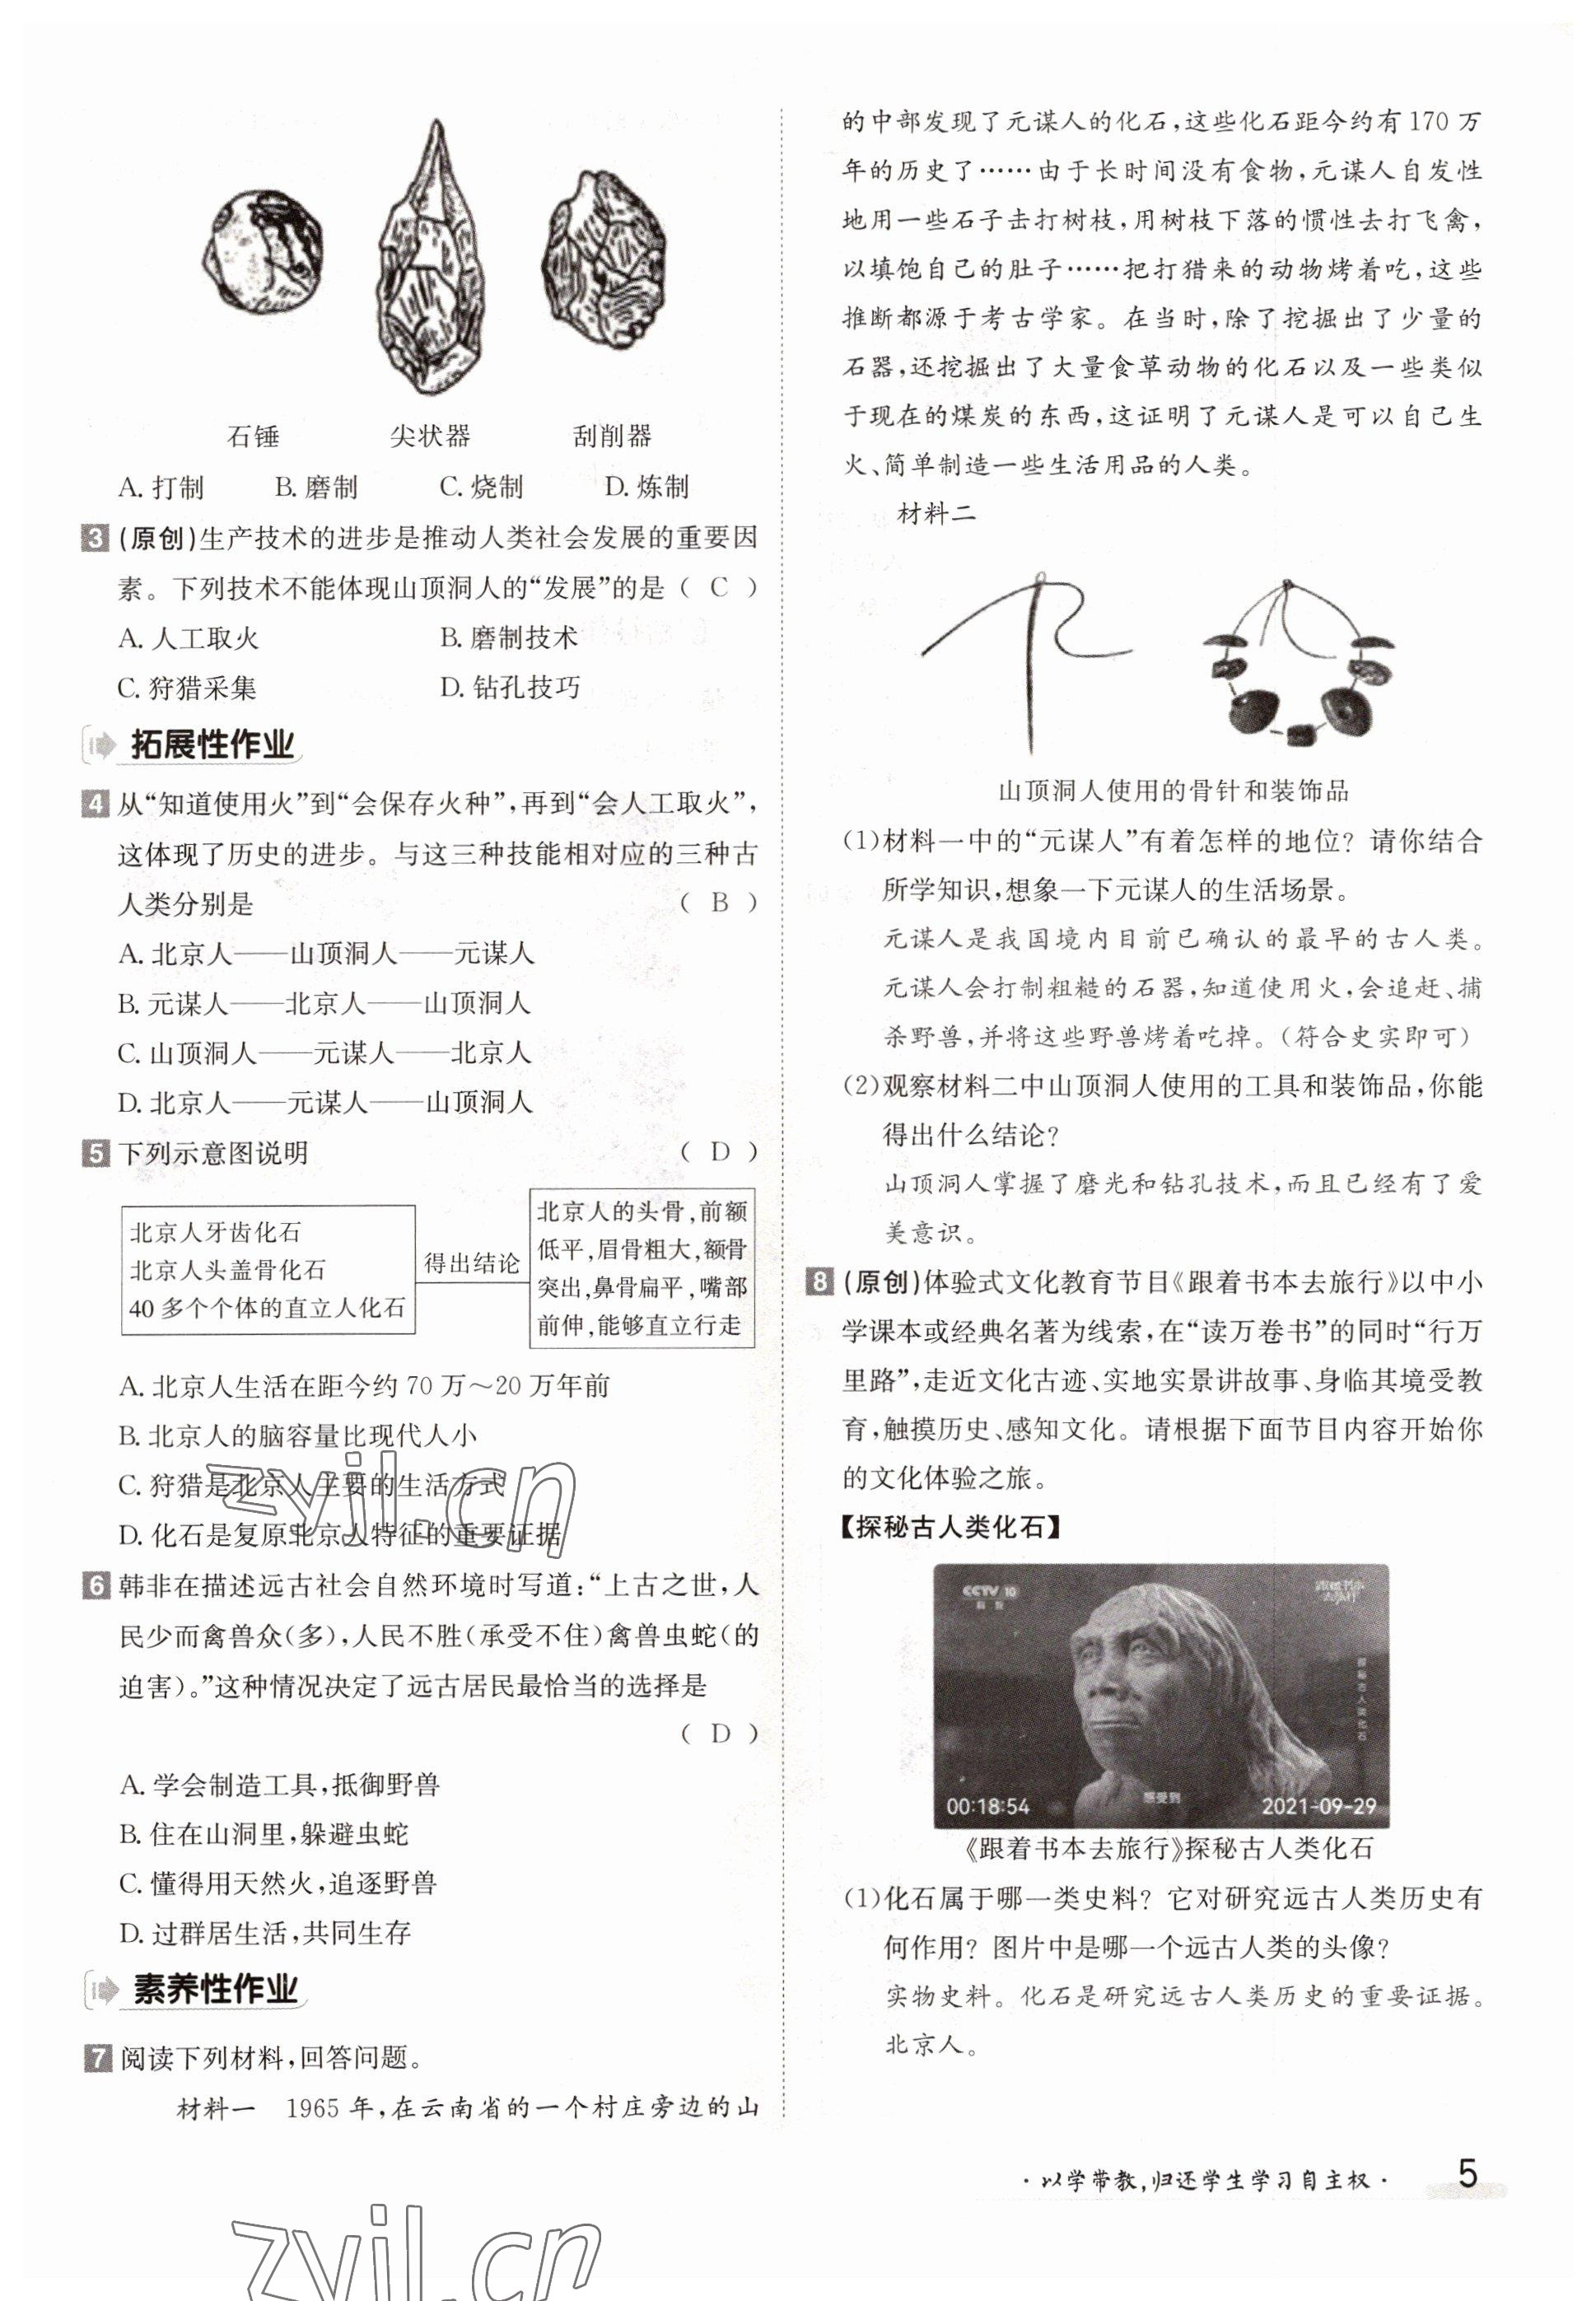 石锤 尖状器 刮削器
A. 打制 B. 磨制 C. 烧制 D. 炼制
3 (原创)生产技术的进步是推动人类社会发展的重要因
素。下列技术不能体现山顶洞人的“发展”的是( C )
A. 人工取火 B. 磨制技术
C. 狩猎采集 D. 钻孔技巧
拓展性作业
4 从“知道使用火”到“会保存火种”,再到“会人工取火”,
这体现了历史的进步。与这三种技能相对应的三种古
人类分别是 ( B )
A. 北京人——山顶洞人——元谋人
B. 元谋人——北京人——山顶洞人
C. 山顶洞人——元谋人——北京人
D. 北京人——元谋人——山顶洞人
5 下列示意图说明 ( D )
北京人牙齿化石
北京人头盖骨化石
40 多个个体的直立人化石
得出结论
北京人的头骨,前额
低平,眉骨粗大,颧骨
突出,鼻骨扁平,嘴部
前伸,能够直立行走
A. 北京人生活在距今约 70 万～20 万年前
B. 北京人的脑容量比现代人小
C. 狩猎是北京人主要的生活方式
D. 化石是复原北京人特征的重要证据
zyjl.cn
6 韩非在描述远古社会自然环境时写道:“上古之世,人
民少而禽兽众(多),人民不胜(承受不住)禽兽虫蛇(的
迫害)。”这种情况决定了远古居民最恰当的选择是
( D )
A. 学会制造工具,抵御野兽
B. 住在山洞里,躲避虫蛇
C. 懂得用天然火,追逐野兽
D. 过群居生活,共同生存
素养性作业
7 阅读下列材料,回答问题。
材料一 1965 年,在云南省的一个村庄旁边的山
的中部发现了元谋人的化石,这些化石距今约有 170 万
年的历史了……由于长时间没有食物,元谋人自发性
地用一些石子击打树枝,用树枝下落的惯性去打飞禽,
以填饱自己的肚子……把打猎来的动物烤着吃,这些
推断都源于考古学家。在当时,除了挖掘出了少量的
石器,还挖掘出了大量食草动物的化石以及一些类似
于现在的煤炭的东西,这证明了元谋人是可以自己生
火、简单制造一些生活用品的人类。
材料二
山顶洞人使用的骨针和装饰品
(1)材料一中的“元谋人”有着怎样的地位? 请你结合
所学知识,想象一下元谋人的生活场景。
元谋人是我国境内目前已确认的最早的古人类。
元谋人会打制粗糙的石器,知道使用火,会追赶、捕
杀野兽,并将这些野兽烤着吃掉。(符合史实即可)
(2)观察材料二中山顶洞人使用的工具和装饰品,你能
得出什么结论?
山顶洞人掌握了磨光和钻孔技术,而且已经有了爱
美意识。
8 (原创)体验式文化教育节目《跟着书本去旅行》以中小
学课本或经典名著为线索,在“读万卷书”的同时“行万
里路”,走近文化古迹、实地实景讲故事、身临其境受教
育,触摸历史、感知文化。请根据下面节目内容开始你
的文化体验之旅。
【探秘古人类化石】
CCTV 10
科教
探秘古人类化石
感受到
00:18:54 2021-09-29
《跟着书本去旅行》探秘古人类化石
(1)化石属于哪一类史料? 它对研究远古人类历史有
何作用? 图片中是哪一个远古人类的头像?
实物史料。化石是研究远古人类历史的重要证据。
北京人。
·以学带教,归还学生学习自主权· 5
zyjl.cn